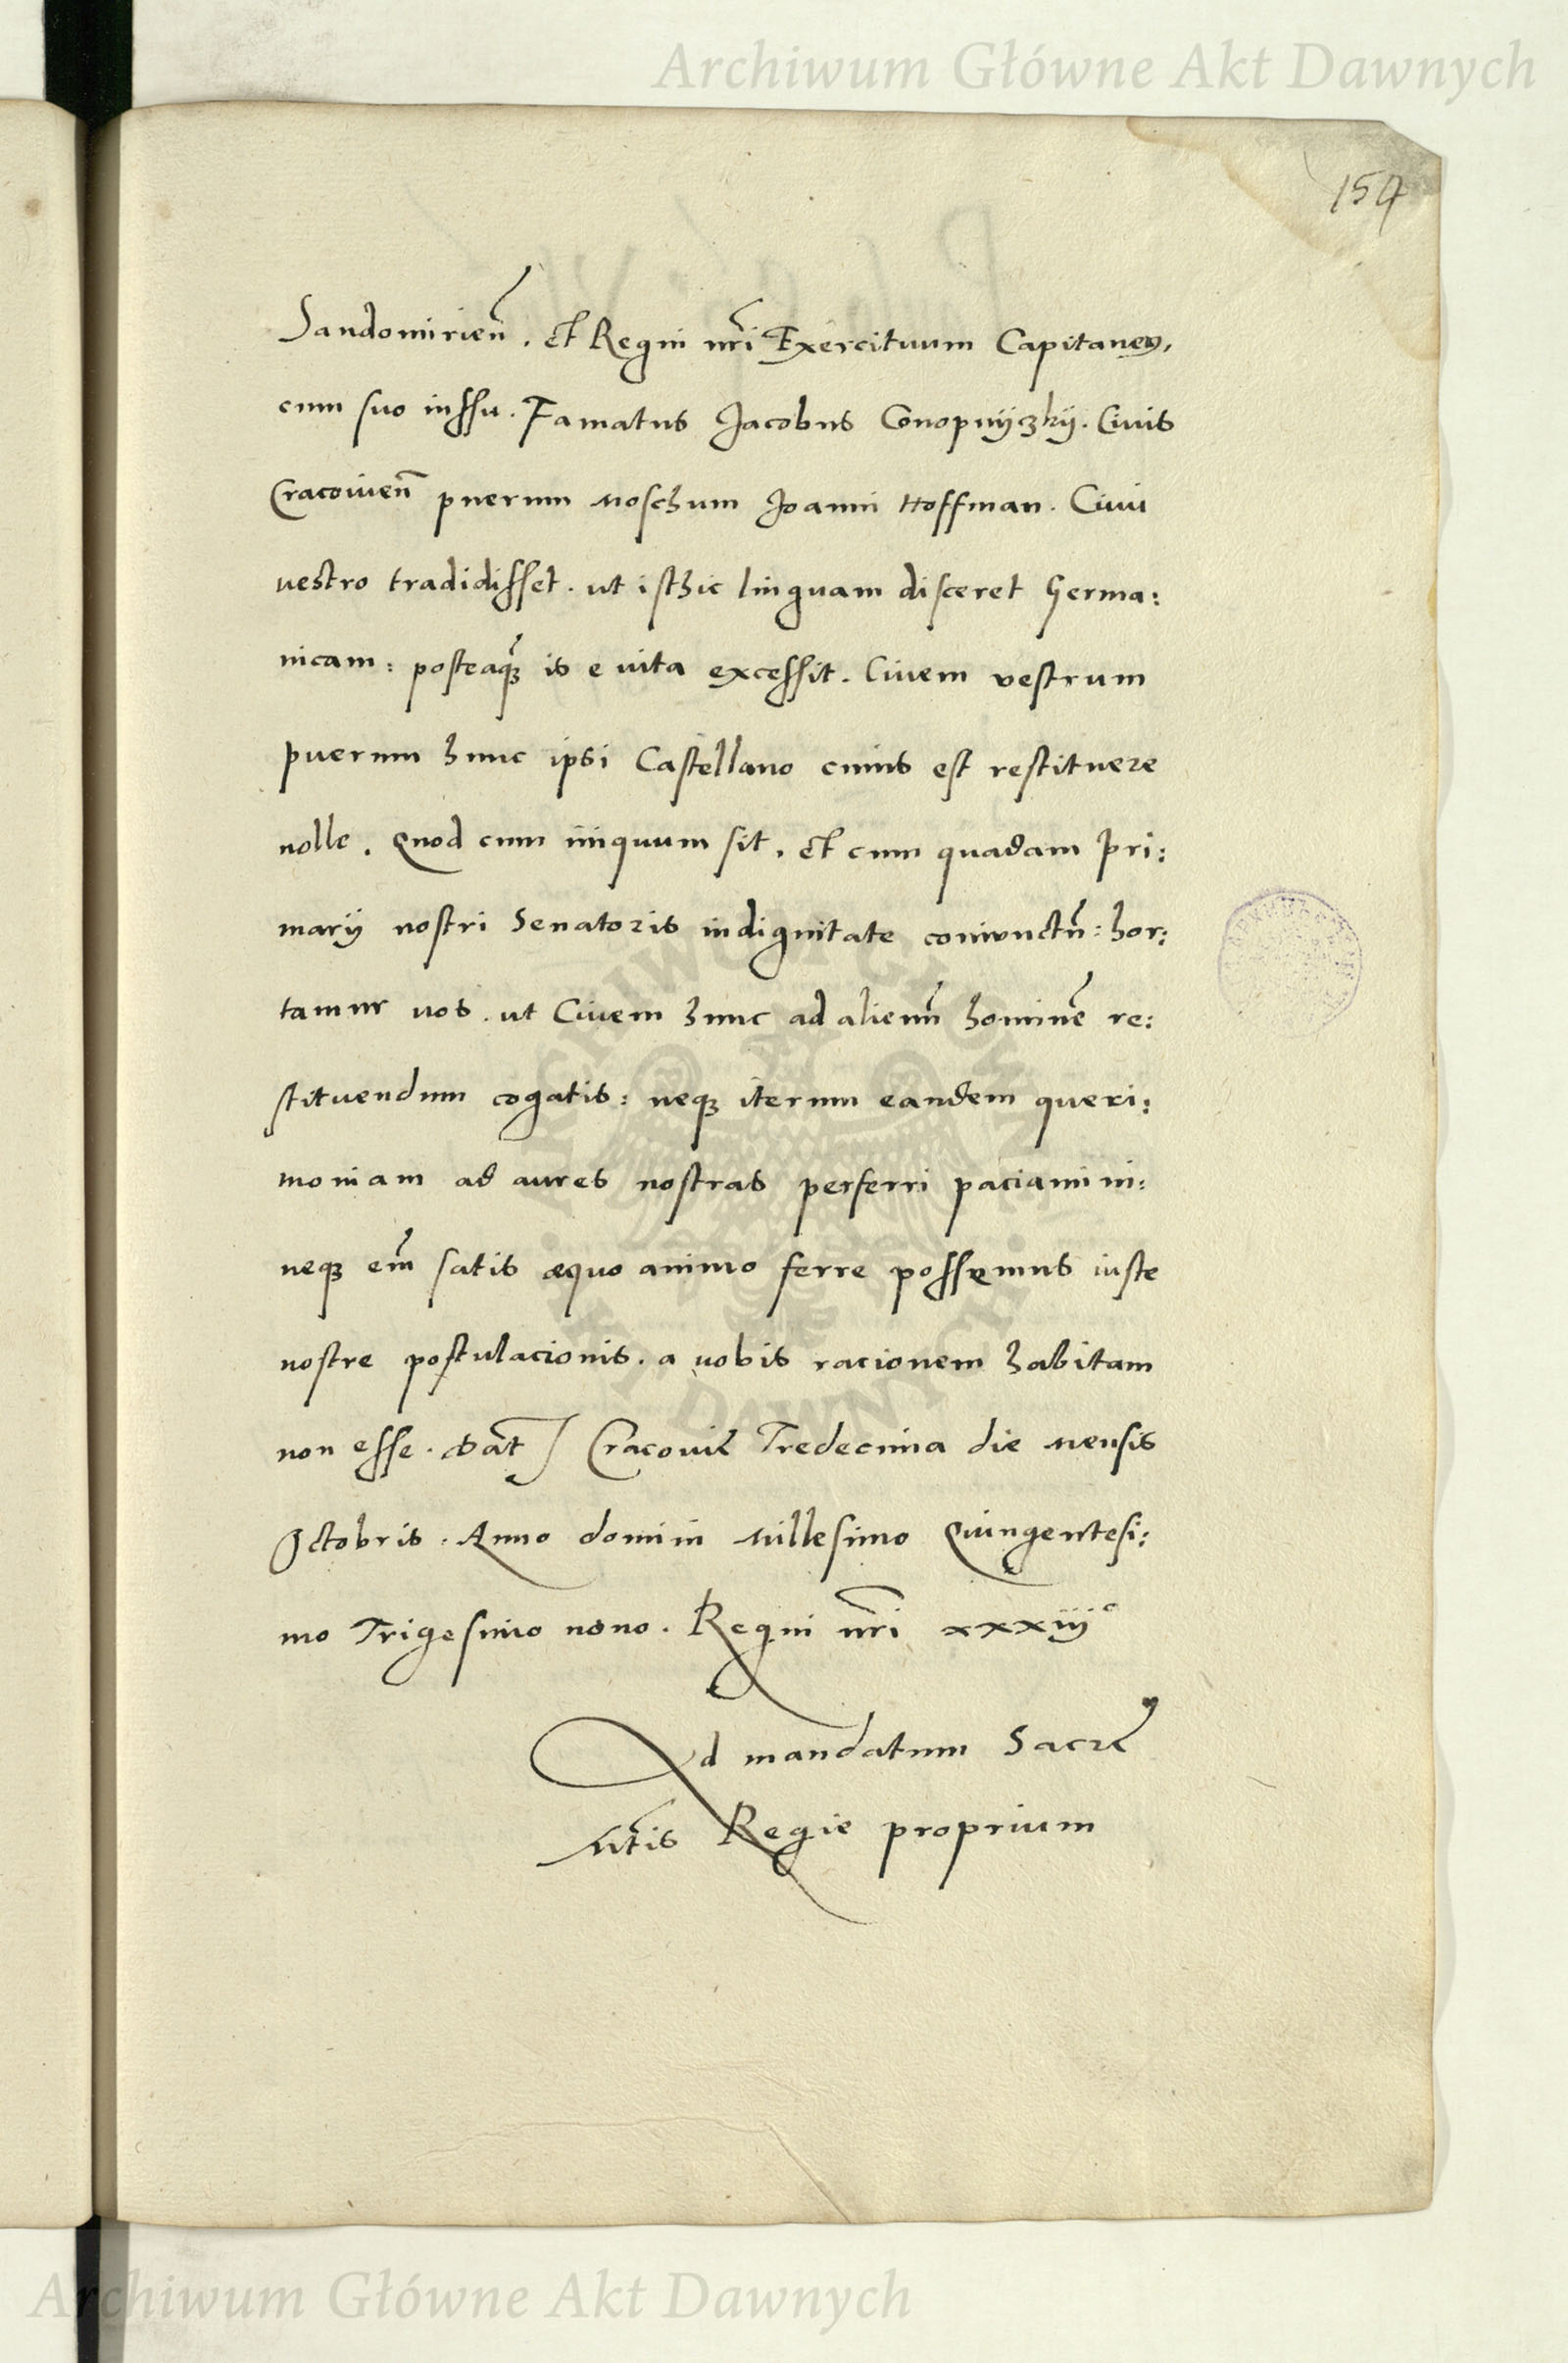 Archiwum Główne Akt Dawnych
154
Sandomirien̄. et Regni nr̄i Exercituum Capitaneus,
cum suo iussu. Famatus Jacobus Conopnÿczkÿ. Ciuis
Cracouien̄ puerum Moschum Joanni Hoffman. Ciui
uestro tradidisset. ut isthic linguam disceret Germa:
nicam: posteaq̄ is e uita excessit. Ciuem vestrum
puerum hunc ipsi Castellano cuius est restituere
nolle. Quod cum iniquum sit, et cum quadam Pri:
marÿ nostri Senatoris indignitate coniunctū: hor:
tamur uos. ut Ciuem hunc ad alienū hominē re:
stituendum cogatis: neqȝ iterum eandem queri:
moniam ad aures nostras perferri paciamini:
neqȝ em̄ satis æquo animo ferre possemus iuste
nostre postulacionis. a uobis racionem habitam
non esse. Dat̄ Cracouię Tredecima die Mensis
Octobris. Anno domini Millesimo Quingentesi:
mo Trigesimo nono. Regni nr̄i xxxiijo
Ad mandatum Sacrę
Mt̄is Regie proprium
ARCHIWUM GŁÓWNE
AKT DAWNYCH
Archiwum Główne Akt Dawnych